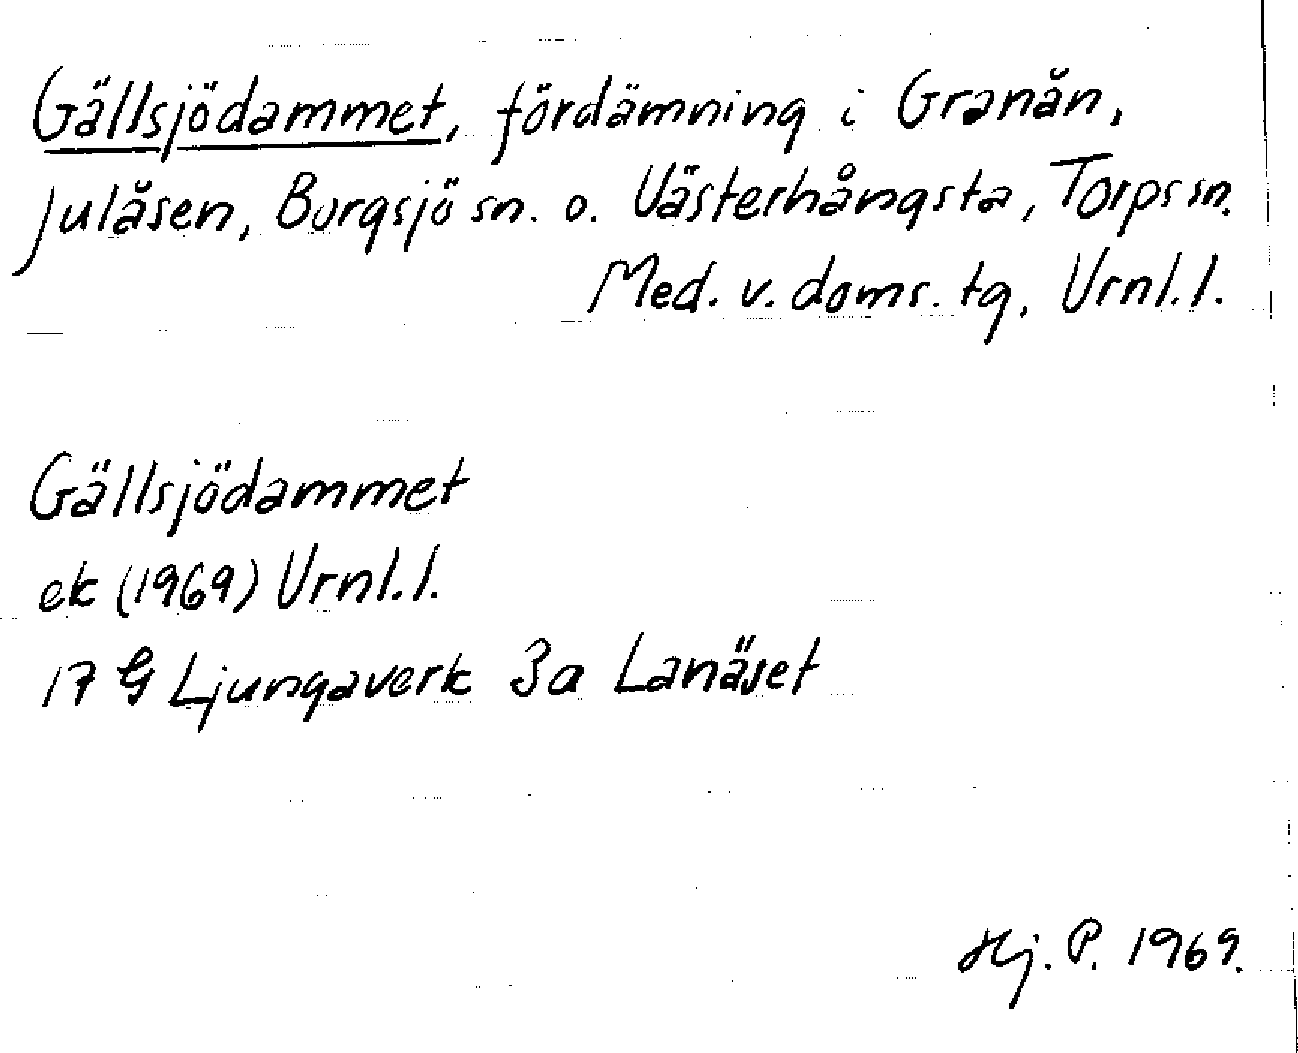 Gällsjödammet, fördämning i Granån,
Julåsen, Borgsjö sn. o. Västerhångsta, Torps sn.
Med. v. doms. tg, Vrnl. l.
Gällsjödammet
ek (1969) Vrnl. l.
17 G Ljungaverk 3a Lanäset
Hj. P. 1969.